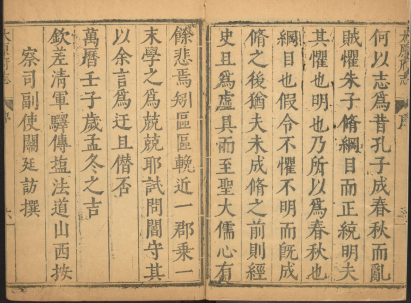 何以志爲昔孔子成春秋而亂
賊懼朱子脩綱目而正統明夫
其懼也明也乃所以爲春秋也
綱目也假令不懼不明而旣成
脩之後猶夫未成脩之前則經
史且爲虛具而至聖大儒心有
餘悲焉矧區區輓近一郡乗一
末學之爲兢兢耶試問閣守其
以余言爲迂且僭否
萬曆壬子歲孟冬之吉
欽差清軍驛傳塩法道山西按
察司副使關廷訪撰